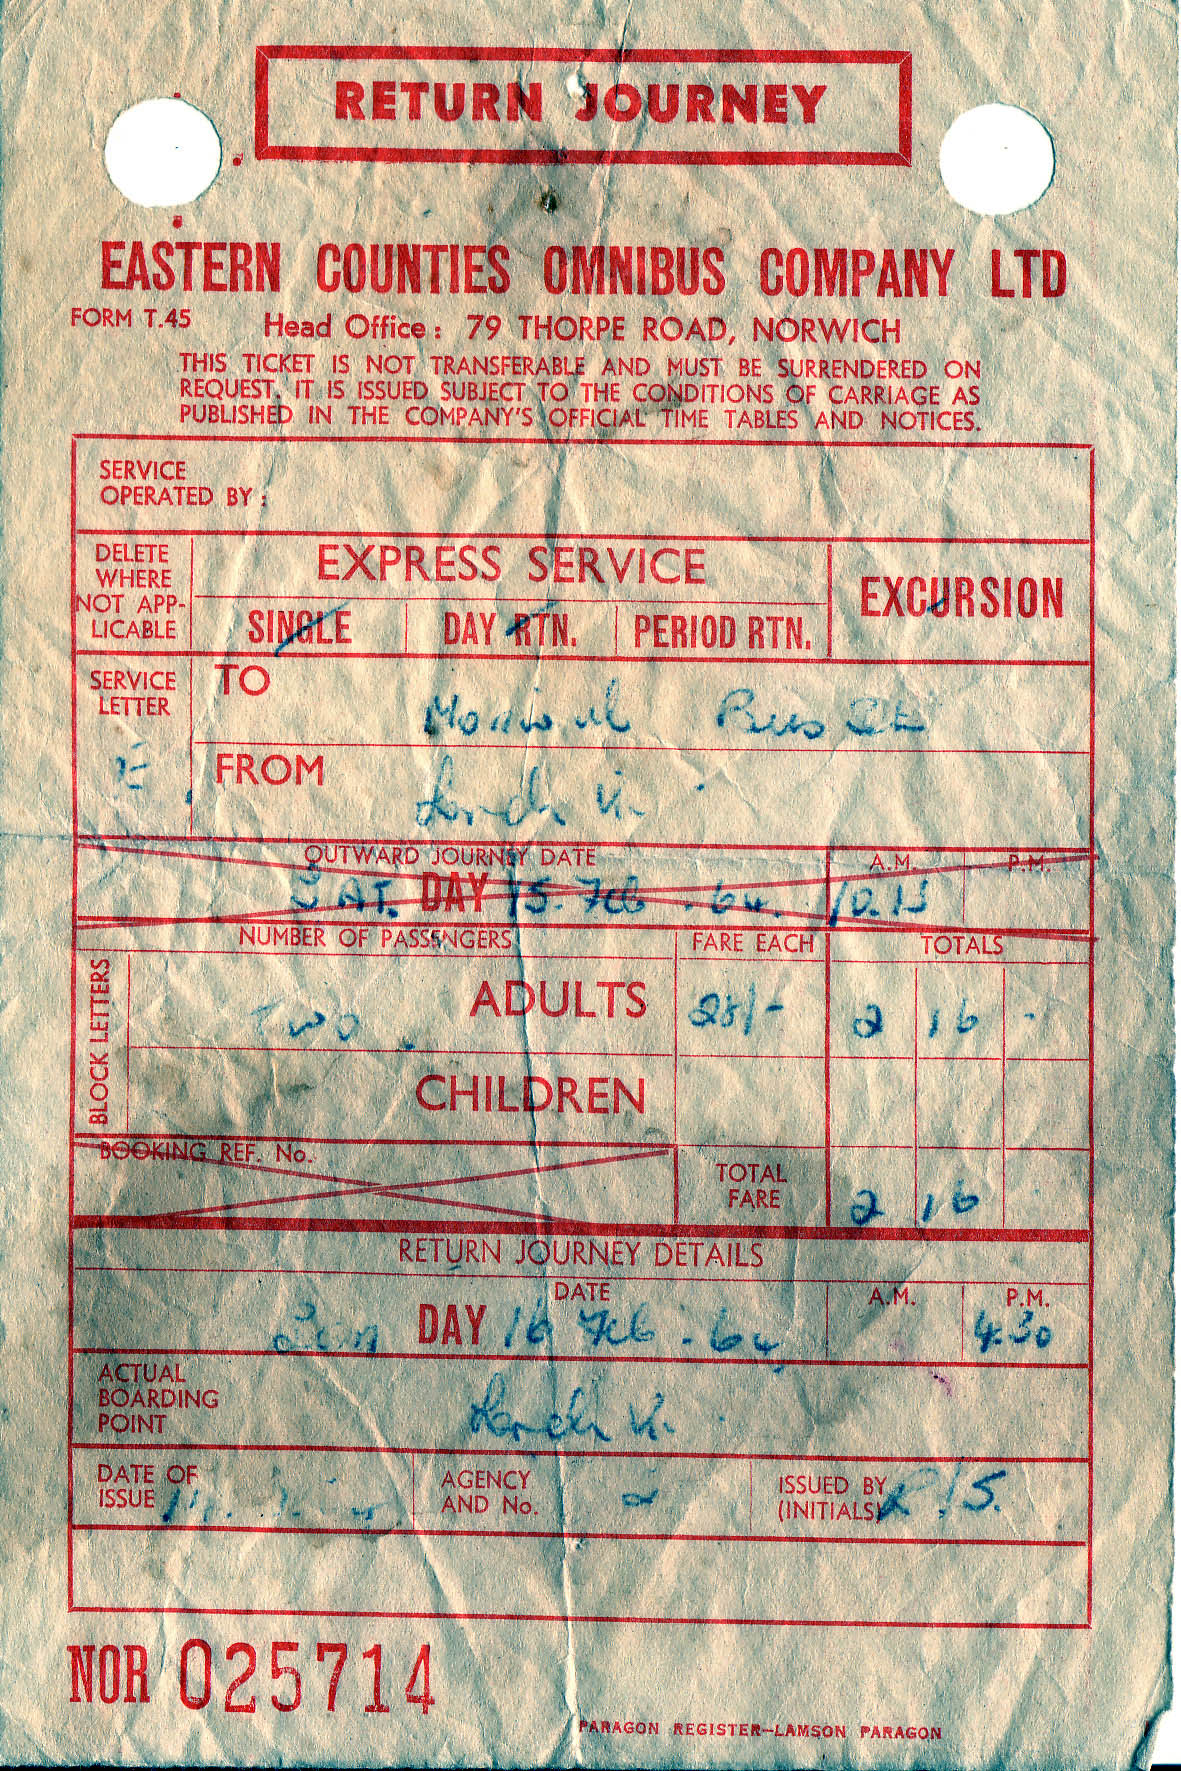 RETURN JOURNEY
EASTERN COUNTIES OMNIBUS COMPANY LTD
FORM T.45 Head Office: 79 THORPE ROAD, NORWICH
THIS TICKET IS NOT TRANSFERABLE AND MUST BE SURRENDERED ON
REQUEST. IT IS ISSUED SUBJECT TO THE CONDITIONS OF CARRIAGE AS
PUBLISHED IN THE COMPANY'S OFFICIAL TIME TABLES AND NOTICES.
SERVICE
OPERATED BY:
DELETE
WHERE
NOT APP-
LICABLE
EXPRESS SERVICE
EXCURSION
SINGLE DAY RTN. PERIOD RTN.
SERVICE
LETTER
E
TO Bus
FROM
OUTWARD JOURNEY DATE A.M. P.M.
SAT. DAY 15. Feb. 64. 10.15
NUMBER OF PASSENGERS FARE EACH TOTALS
BLOCK LETTERS
TWO ADULTS 28/- 2 16 -
CHILDREN
BOOKING REF. No.
TOTAL
FARE
2 16
RETURN JOURNEY DETAILS
DATE A.M. P.M.
Sun DAY 16 Feb. 64 4.30
ACTUAL
BOARDING
POINT
DATE OF
ISSUE
AGENCY
AND No. 2
ISSUED BY
(INITIALS)
NOR 025714
PARAGON REGISTER-LAMSON PARAGON